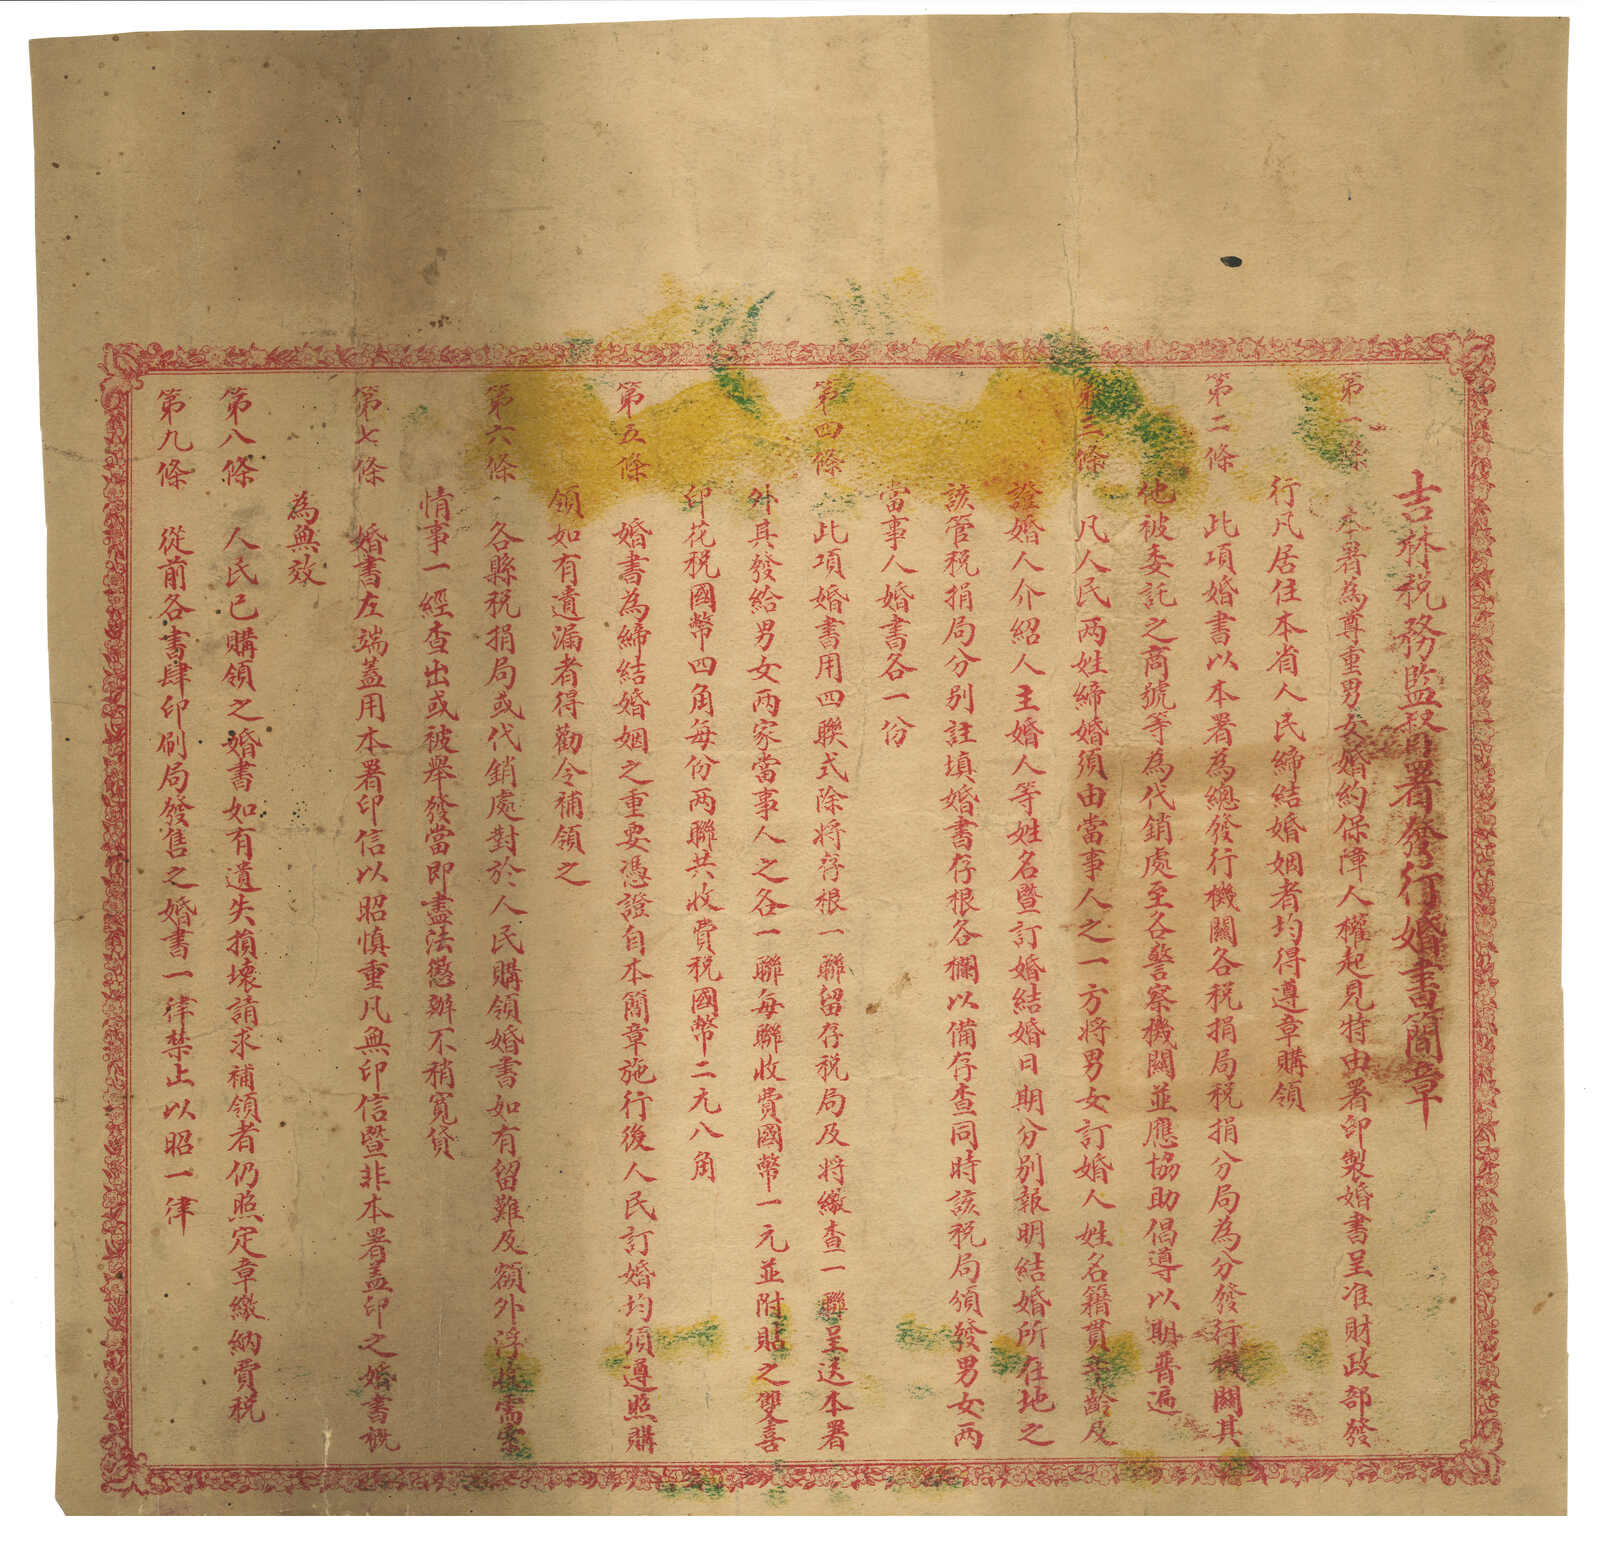 吉林税務監督署發行婚書簡章
第一條 本署為尊重男女婚約保障人權起見特由署印製婚書呈准財政部發
行凡居住本省人民締結婚姻者均得遵章購領
第二條 此項婚書以本署為總發行機關各税捐局税捐分局為分發行機關其
他被委託之商號等為代銷處至各警察機關並應協助倡導以期普遍
第三條 凡人民两姓締婚須由當事人之一方将男女訂婚人姓名籍貫年齡及
證婚人介紹人主婚人等姓名暨訂婚結婚日期分别報明結婚所在地之
該管税捐局分别註填婚書存根各欄以備存查同時該税局頒發男女两
當事人婚書各一份
第四條 此項婚書用四聯式除将存根一聯留存税局及将繳查一聯呈送本署
外其發給男女两家當事人之各一聯每聯收費國幣一元並附貼之雙喜
印花税國幣四角每份两聯共收費税國幣二元八角
第五條 婚書為締結婚姻之重要憑證自本簡章施行後人民訂婚均須遵照購
領如有遺漏者得勸令補領之
第六條 各縣税捐局或代銷處對於人民購領婚書如有留難及額外浮收需索
情事一經查出或被舉發當即盡法懲辦不稍寬貸
第七條 婚書左端蓋用本署印信以昭慎重凡無印信暨非本署盖印之婚書概
為無效
第八條 人民已購領之婚書如有遺失損壞請求補領者仍照定章繳納費税
第九條 從前各書肆印刷局發售之婚書一律禁止以昭一律